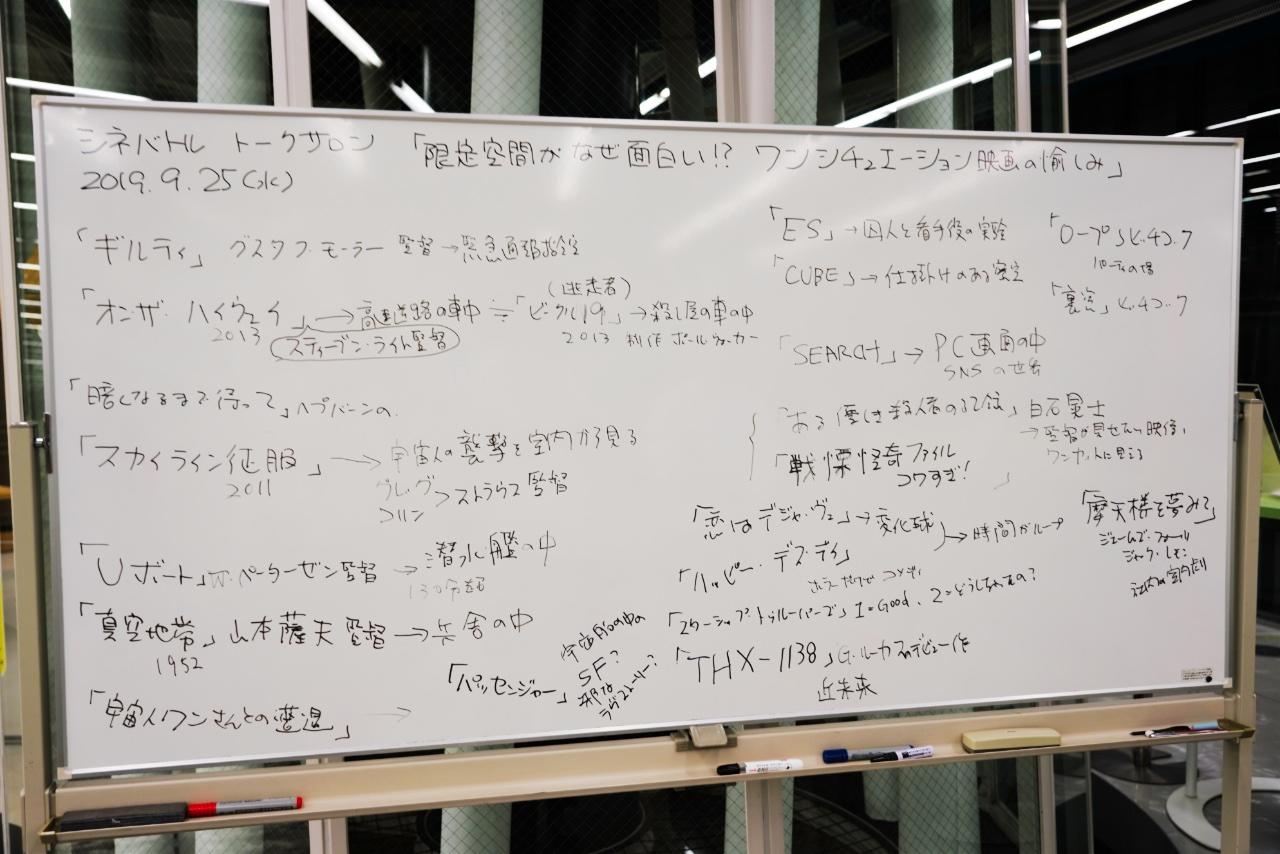 シネバトル トークサロン 「限定空間がなぜ面白い!? ワンシチュエーション映画の愉しみ」
2019.9.25(水)
「ギルティ」 グスタフ・モーラー 監督→緊急通報指令室
(逃走者)
「オン・ザ・ハイウェイ」→高速道路の車中≒「ビークル19」→殺し屋の車の中
2013
2013 制作 ポール・ウォーカー
スティーブン・ライト監督
「暗くなるまで待って」ヘプバーンの
「スカイライン征服」→宇宙人の襲撃を室内から見る
2011
グレッグ
コリン>ストラウス監督
「Uボート」W・ペーターゼン監督→潜水艦の中
「真空地帯」山本薩夫監督→兵舎の中
1952
「宇宙人ワンさんとの遭遇」→
「パッセンジャー」
宇宙船の中の
SF?
ラヴストーリー?
「ES」→囚人と看守役の実験
「CUBE」→仕掛けのある密室
「SEARCH」→PC画面の中
SNSの世界
「ロープ」ヒッチコック
パーティの場
「裏窓」ヒッチコック
「ある優しき殺人者の記録」白石晃士
→監督が見せたい映像、
ワンカットに見える
「戦慄怪奇ファイル
コワすぎ!」
「恋はデジャ・ヴ」→変化球
「ハッピー・デス・デイ」
→時間がループ
コメディ
「スターシップ・トゥルーパーズ」1=Good、2=どうしちゃったの?
「THX-1138」G.ルーカスのデビュー作
近未来
「摩天楼を夢みて」
ジェームズ・フォーリー
ジャック・レモン
社内の室内劇